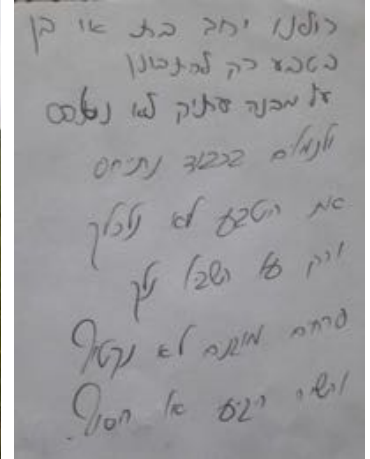 כולנו יחב בת או בן
בטבע רק להתבונן
על מבנה עתיק לא נטפס
ולנמלים בכבוד נתיחס
את הטבע לא נלכלך
ורק על השביל נלך
פרחים מוגנים לא נקטוף
והשיר הגיע אל הסוף.